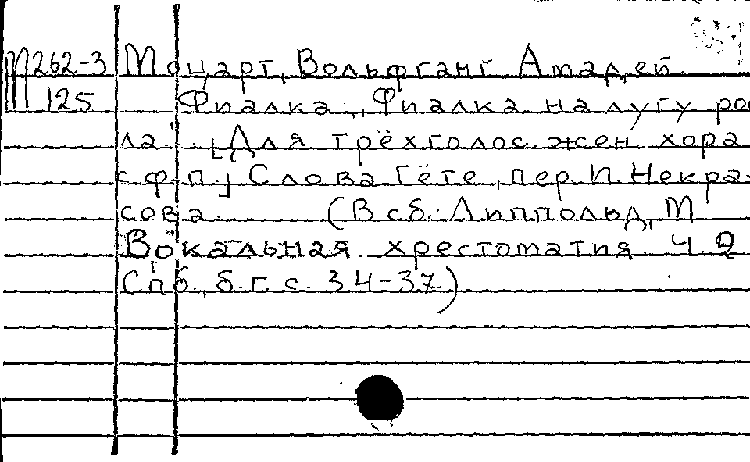 М262-3 Моцарт, Вольфганг Амадей
М 125 Фиалка „Фиалка на лугу рос
ла". [Для трёхголос. жен. хора
с ф.п.] Слова Гёте, пер. Н. Некра-
сова. (В сб: Липпольд, М
Вокальная хрестоматия Ч 2
Спб, б.г. с. 34-37)